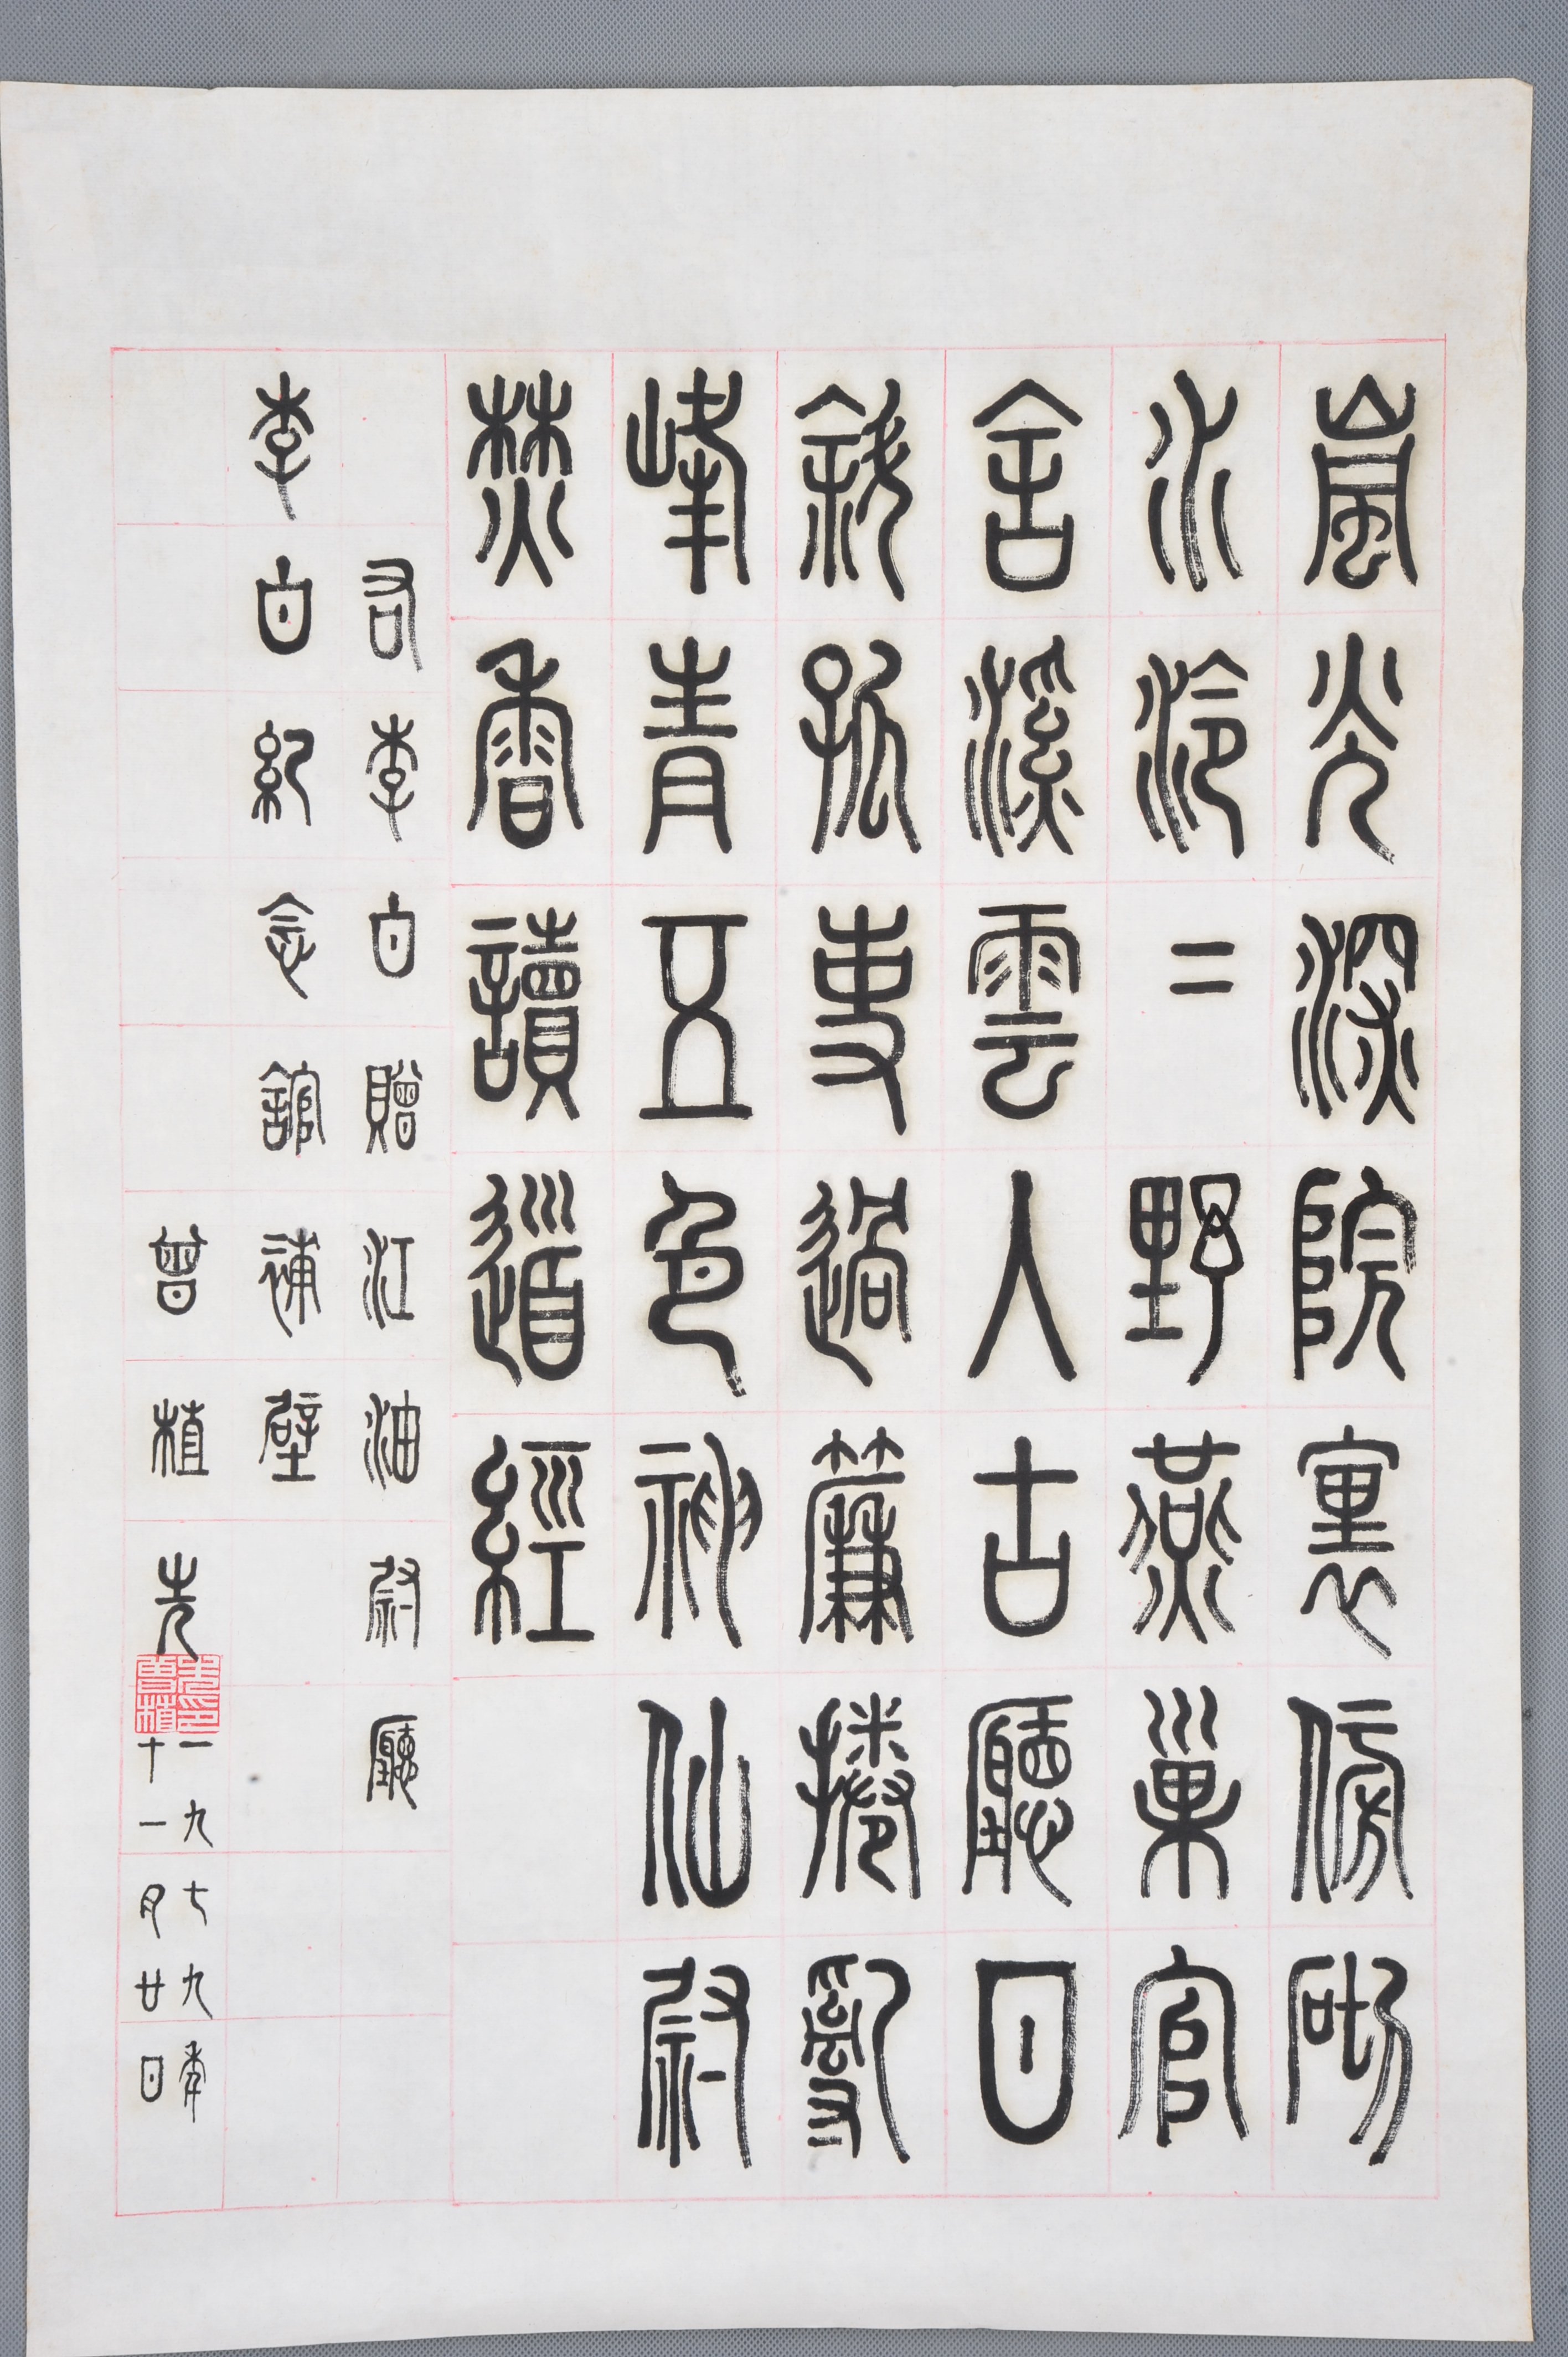 嵐光深院裏傍砌
水泠二野燕巢官
舍溪雲入古廳日
斜孤吏過簾捲亂
峰青五色神仙尉
焚香讀道經
右李白贈江油尉廳
李白紀念館補壁
曾植先
一九七九年
十一月廿日
曾植先印